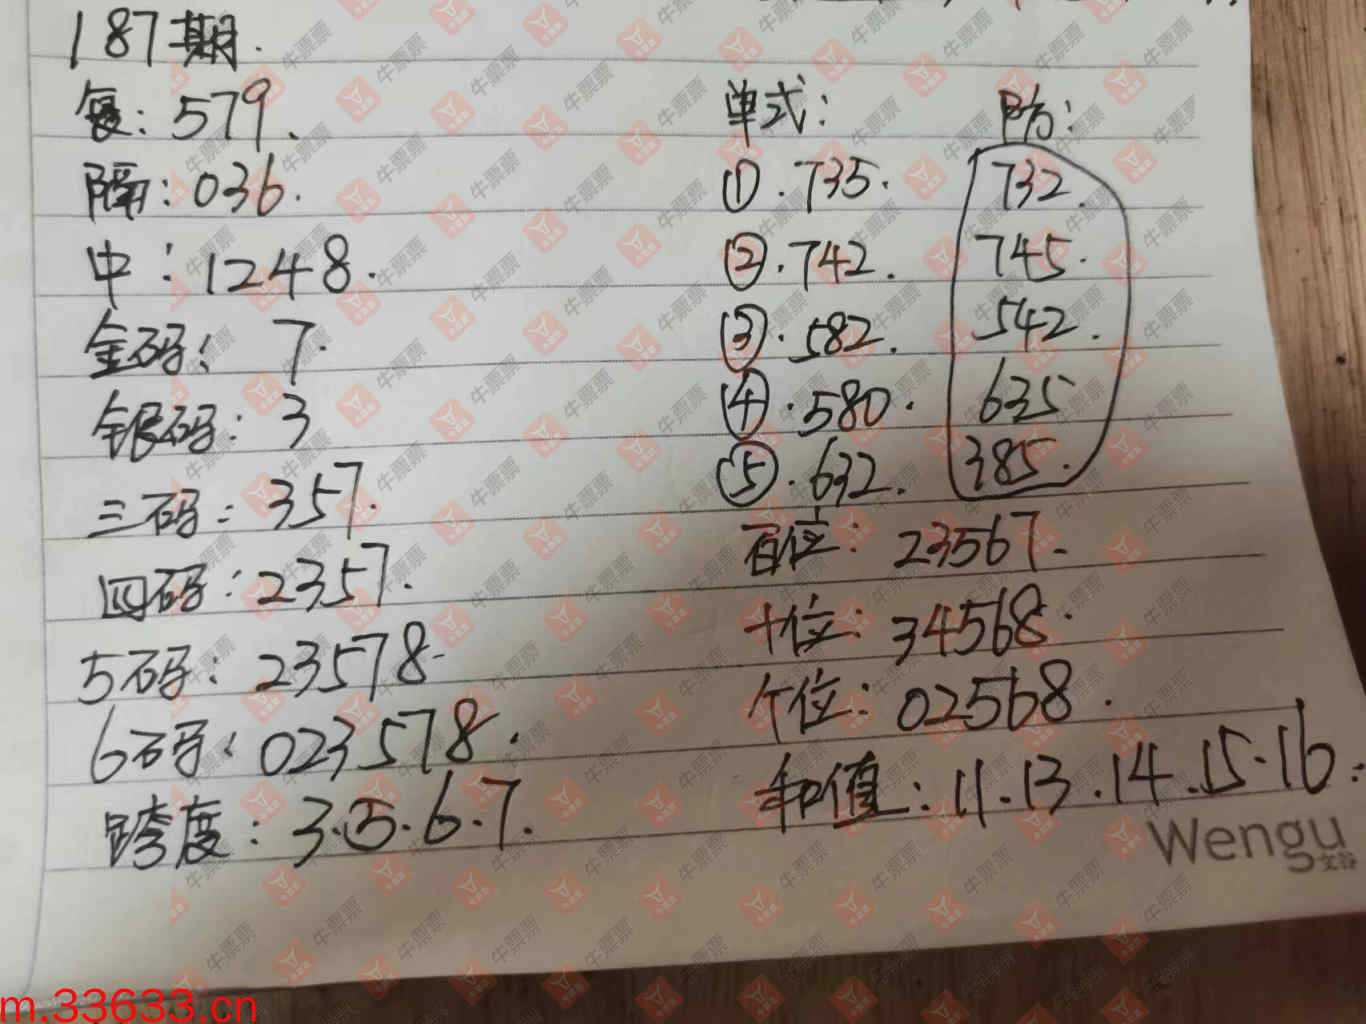 187期.
复: 579.
隔: 036.
中: 1248.
金码: 7.
银码: 3
三码: 357.
四码: 2357.
5码: 23578.
6码: 023578.
跨度: 3.⑤.6.7.
单式:
①.735.
②.742.
③.582.
④.580.
⑤.632.
防:
732.
745.
542.
635
385.
百位: 23567.
十位: 34568.
个位: 02568.
和值: 11.13.14.15.16.
Wengu
文谷
牛票票
m.33633.cn